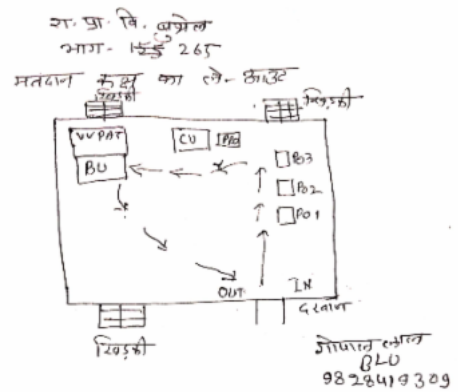 रा. प्रा. वि. बुझेल
भाग - 265
मतदान कक्ष का ले-आउट
खिड़की
खिड़की
VVPAT
CU
PRO
BU
PO3
PO2
PO1
OUT
IN
दरवाजा
खिड़की
गोपाल लाल
BLO
9828419309